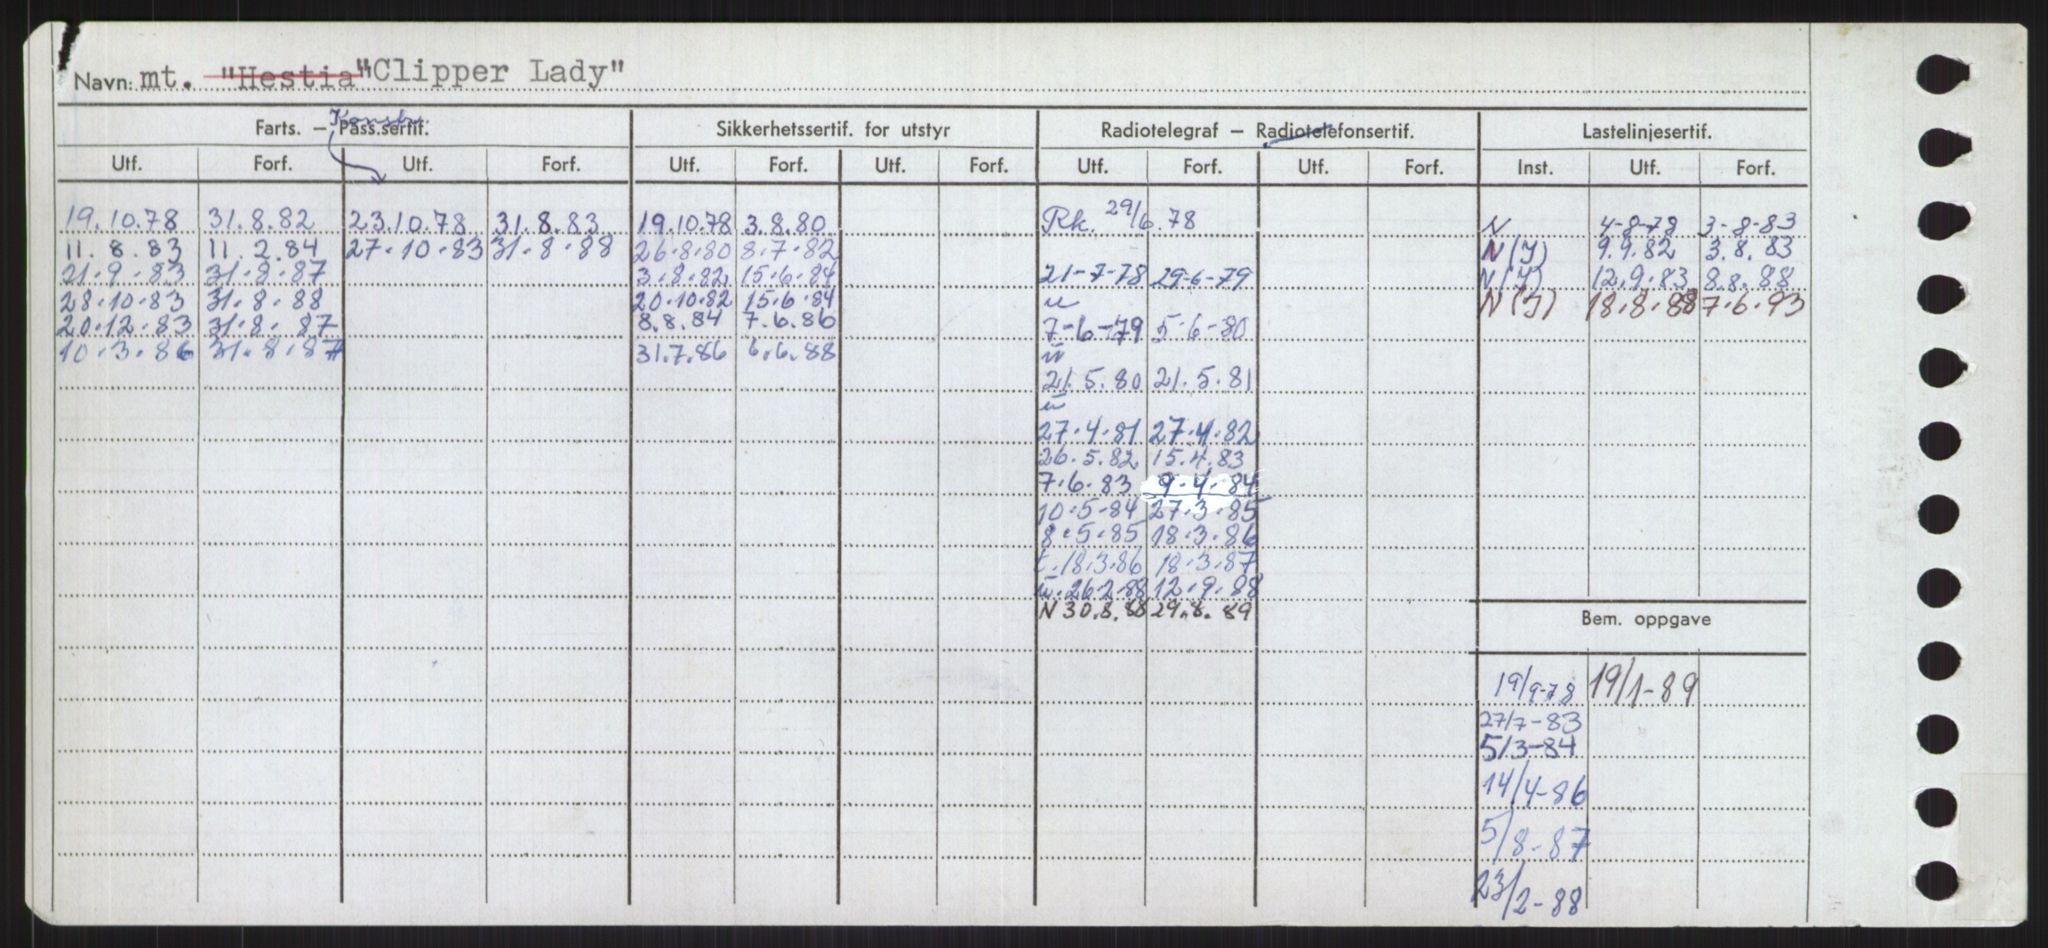 Navn: mt. "Hestia" "Clipper Lady"
Farts. – Pass.sertif. Konstr. Sikkerhetssertif. for utstyr Radiotelegraf – Radiotelefonsertif. Lastelinjesertif.
Utf. Forf. Utf. Forf. Utf. Forf. Utf. Forf. Utf. Forf. Utf. Forf. Inst. Utf. Forf.
19.10.78 31.8.82 23.10.78 31.8.83 19.10.78 3.8.80 Rk. 29/6.78 N 4-8-78 3-8-83
11.8.83 11.2.84 27.10.83 31.8.88 26.8.80 8.7.82 N(J) 9.9.82 3.8.83
21.9.83 31.8.87 3.8.82 15.6.84 21-7-78 29-6-79 N(J) 12.9.83 8.8.88
28.10.83 31.8.88 20.10.82 15.6.84 N(J) 18.8.88 7.6.93
20.12.83 31.8.87 8.8.84 7.6.86 7-6-79 5-6-80
10.3.86 31.8.87 31.7.86 6.6.88
21.5.80 21.5.81
27.4.81 27.4.82
26.5.82 15.4.83
7.6.83 9.4.84
10.5.84 27.3.85
8.5.85 18.3.86
t.18.3.86 18.3.87
26.2.88 12.9.88
N 30.8.88 29.8.89
Bem. oppgave
19/9-78 19/1-89
27/7-83
5/3-84
14/4-86
5/8-87
23/2-88